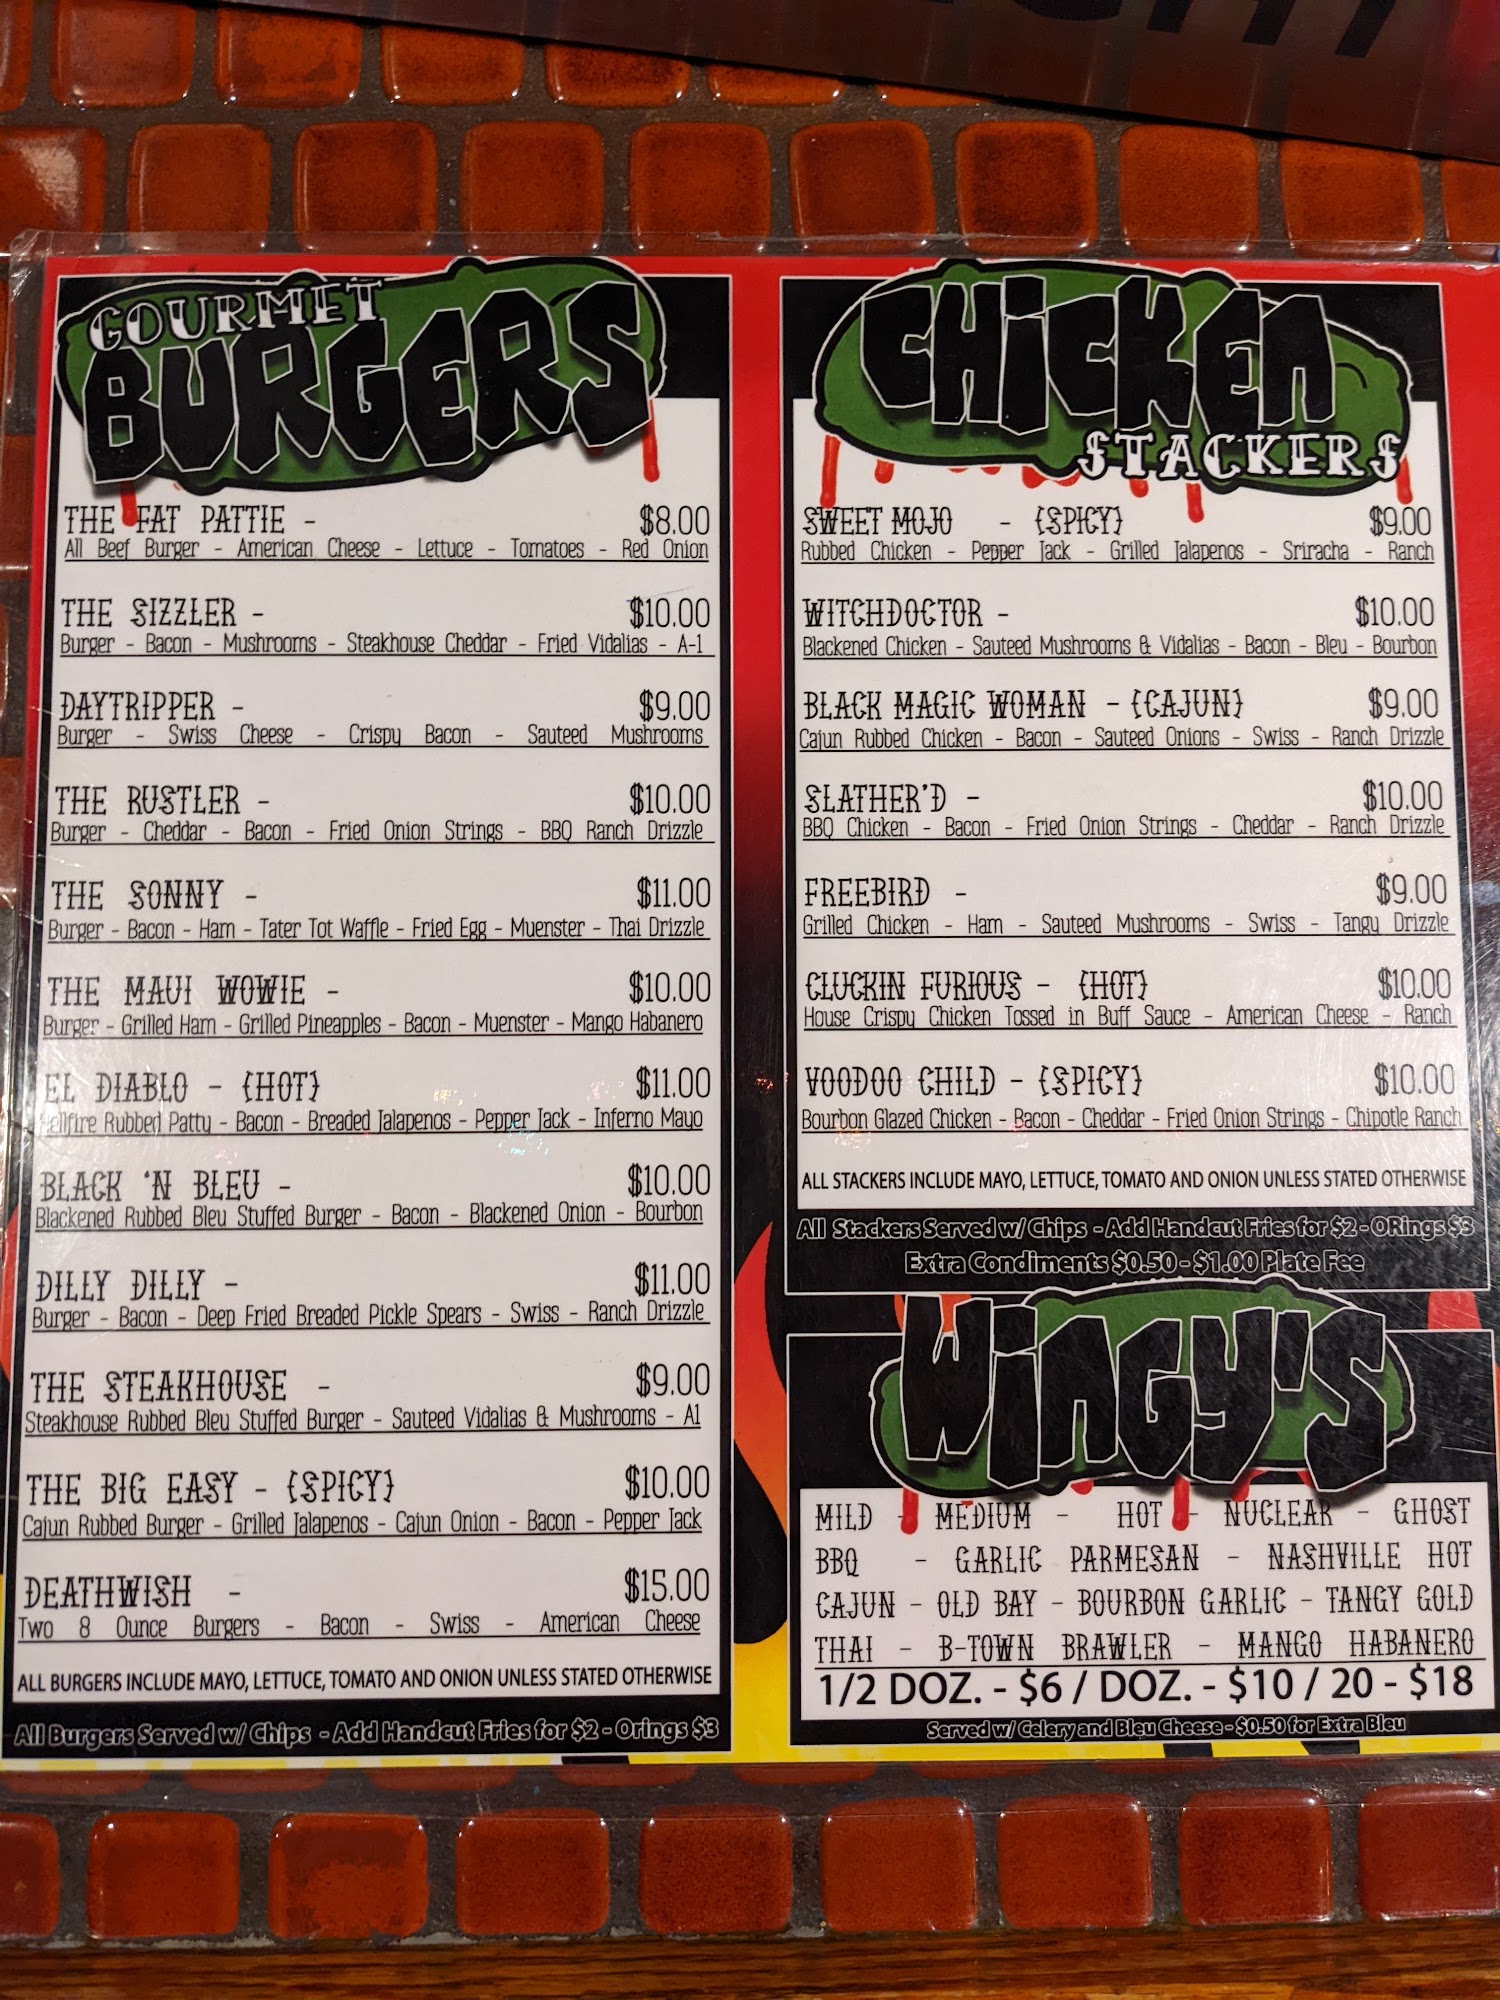 GOURMET
BURGERS
THE FAT PATTIE - $8.00
All Beef Burger - American Cheese - Lettuce - Tomatoes - Red Onion
THE SIZZLER - $10.00
Burger - Bacon - Mushrooms - Steakhouse Cheddar - Fried Vidalias - A-1
DAYTRIPPER - $9.00
Burger - Swiss Cheese - Crispy Bacon - Sauteed Mushrooms
THE RUSTLER - $10.00
Burger - Cheddar - Bacon - Fried Onion Strings - BBQ Ranch Drizzle
THE SONNY - $11.00
Burger - Bacon - Ham - Tater Tot Waffle - Fried Egg - Muenster - Thai Drizzle
THE MAUI WOWIE - $10.00
Burger - Grilled Ham - Grilled Pineapples - Bacon - Muenster - Mango Habanero
EL DIABLO - {HOT} $11.00
Hellfire Rubbed Patty - Bacon - Breaded Jalapenos - Pepper Jack - Inferno Mayo
BLACK 'N BLEU - $10.00
Blackened Rubbed Bleu Stuffed Burger - Bacon - Blackened Onion - Bourbon
DILLY DILLY - $11.00
Burger - Bacon - Deep Fried Breaded Pickle Spears - Swiss - Ranch Drizzle
THE STEAKHOUSE - $9.00
Steakhouse Rubbed Bleu Stuffed Burger - Sauteed Vidalias & Mushrooms - A1
THE BIG EASY - {SPICY} $10.00
Cajun Rubbed Burger - Grilled Jalapenos - Cajun Onion - Bacon - Pepper Jack
DEATHWISH - $15.00
Two 8 Ounce Burgers - Bacon - Swiss - American Cheese
ALL BURGERS INCLUDE MAYO, LETTUCE, TOMATO AND ONION UNLESS STATED OTHERWISE
All Burgers Served w/ Chips - Add Handcut Fries for $2 - Orings $3
CHICKEN
STACKERS
SWEET MOJO - {SPICY} $9.00
Rubbed Chicken - Pepper Jack - Grilled Jalapenos - Sriracha - Ranch
WITCHDOCTOR - $10.00
Blackened Chicken - Sauteed Mushrooms & Vidalias - Bacon - Bleu - Bourbon
BLACK MAGIC WOMAN - {CAJUN} $9.00
Cajun Rubbed Chicken - Bacon - Sauteed Onions - Swiss - Ranch Drizzle
SLATHER'D - $10.00
BBQ Chicken - Bacon - Fried Onion Strings - Cheddar - Ranch Drizzle
FREEBIRD - $9.00
Grilled Chicken - Ham - Sauteed Mushrooms - Swiss - Tangy Drizzle
CLUCKIN FURIOUS - {HOT} $10.00
House Crispy Chicken Tossed in Buff Sauce - American Cheese - Ranch
VOODOO CHILD - {SPICY} $10.00
Bourbon Glazed Chicken - Bacon - Cheddar - Fried Onion Strings - Chipotle Ranch
ALL STACKERS INCLUDE MAYO, LETTUCE, TOMATO AND ONION UNLESS STATED OTHERWISE
All Stackers Served w/ Chips - Add Handcut Fries for $2 - ORings $3
Extra Condiments $0.50 - $1.00 Plate Fee
WINGY'S
MILD - MEDIUM - HOT - NUCLEAR - GHOST
BBQ - GARLIC PARMESAN - NASHVILLE HOT
CAJUN - OLD BAY - BOURBON GARLIC - TANGY GOLD
THAI - B-TOWN BRAWLER - MANGO HABANERO
1/2 DOZ. - $6 / DOZ. - $10 / 20 - $18
Served w/ Celery and Bleu Cheese - $0.50 for Extra Bleu